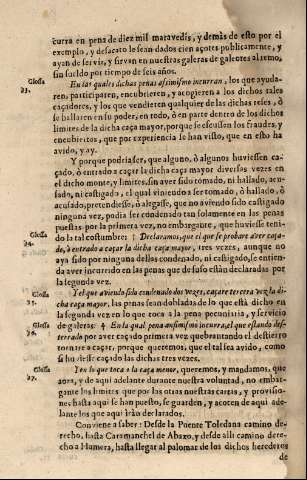 curra en pena de diez mil maravedis, y demàs de esto por el
exemplo, y desacato le sean dados cien açotes publicamente, y
ayan de servir, y sirvan en nuestras galeras de galeotes al remo,
sin sueldo por tiempo de seis años.
Glossa 33.
En las quales dichas penas assimismo incurran, los que ayuda-
ren, participaren, encubrieren, y acogieren a los dichos tales
caçadores, y los que vendieren qualquier de las dichas reses, ò
se hallaren en su poder, en todo, ò en parte dentro de los dichos
limites de la dicha caça mayor, porque se escusen los fraudes, y
encubiertas, que por experiencia se han visto, que en esto ha
avido, y ay.
Y porque podria ser, que alguno, ò algunos huviessen ca-
çado, ò entrado a caçar la dicha caça mayor diversas vezes en
el dicho monte, y limites, sin aver sido tomado, ni hallado, acu-
sado, ni castigado, el qual viniendo a ser tomado, ò hallado, ò
acusado, pretendiesse, ò alegasse, que no aviendo sido castigado
ninguna vez, podia ser condenado tan solamente en las penas
puestas por la primera vez, no embargante, que huviesse teni-
Glossa 34.
do la tal costumbre: † Declaramos, que el que se probare aver caça-
do, ò entrado a caçar la dicha caça mayor, tres vezes, aunque no
aya sido por ninguna dellas condenado, ni castigado, se entien-
da aver incurrido en las penas que de suso estàn declaradas por
la segunda vez.
Glossa 35.
Y el que aviendo sido condenado dos vezes, caçare tercera vez la di-
cha caça mayor, las penas sean dobladas de lo que està dicho en
la segunda vez en lo que toca à la pena pecuniaria, y servicio
Glossa 36.
de galeras: † En la qual pena assimismo incurra, el que estando des-
terrado por aver caçado primera vez quebrantando el destierro
tornare a caçar, porque queremos, que el tal sea avido, como
si huviesse caçado las dichas tres vezes.
Glossa 37.
Y en lo que toca a la caça menor, queremos, y mandamos, que
aora, y de aqui adelante durante nuestra voluntad, no embar-
gante los limites que por las otras nuestras cartas, y provisio-
nes hasta aqui se han puesto, se guarden, y acoten de aqui ade-
lante los que aqui iràn declarados.
Conviene a saber: Desde la Puente Toledana camino de-
recho, hasta Caramanchel de Abaxo, y desde alli camino dere-
cho a Humera, hasta llegar al palomar de los dichos herederos
de